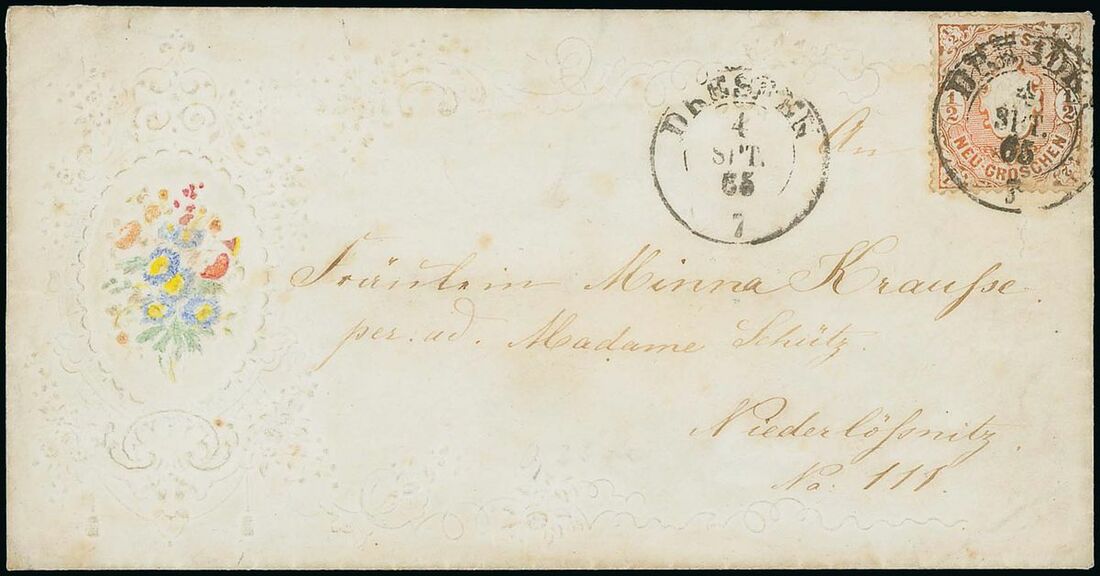 DRESDEN
4
SPT.
65
7
DRESDE
4
SPT.
65
7
1/2
1/2
NEU-GROSCHEN
An
Fräulein Minna Krauſse.
per. ad. Madame Schütz.
Niederlöſsnitz.
No. 111.